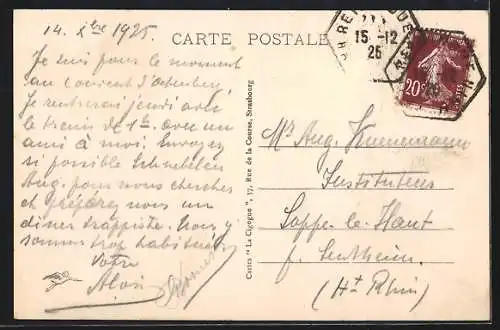 14. Xbre 1925.
CARTE POSTALE
15-12
25
20c
Je suis pour le moment
au couvent d'Oelenberg
Je rentrerai jeudi avec
le train de 1h. avec un
ami à moi. Envoyez
si possible Schnebelen
Aug. pour nous chercher
et préparez nous un
dîner trappiste. Nous y
sommes trop habitués
Votre
Aloïs
Cartes "La Cigogne", 17, Rue de la Course, Strasbourg
Mr Aug.
Instituteur
Soppe-le-Haut
p. Sentheim.
(Ht Rhin)